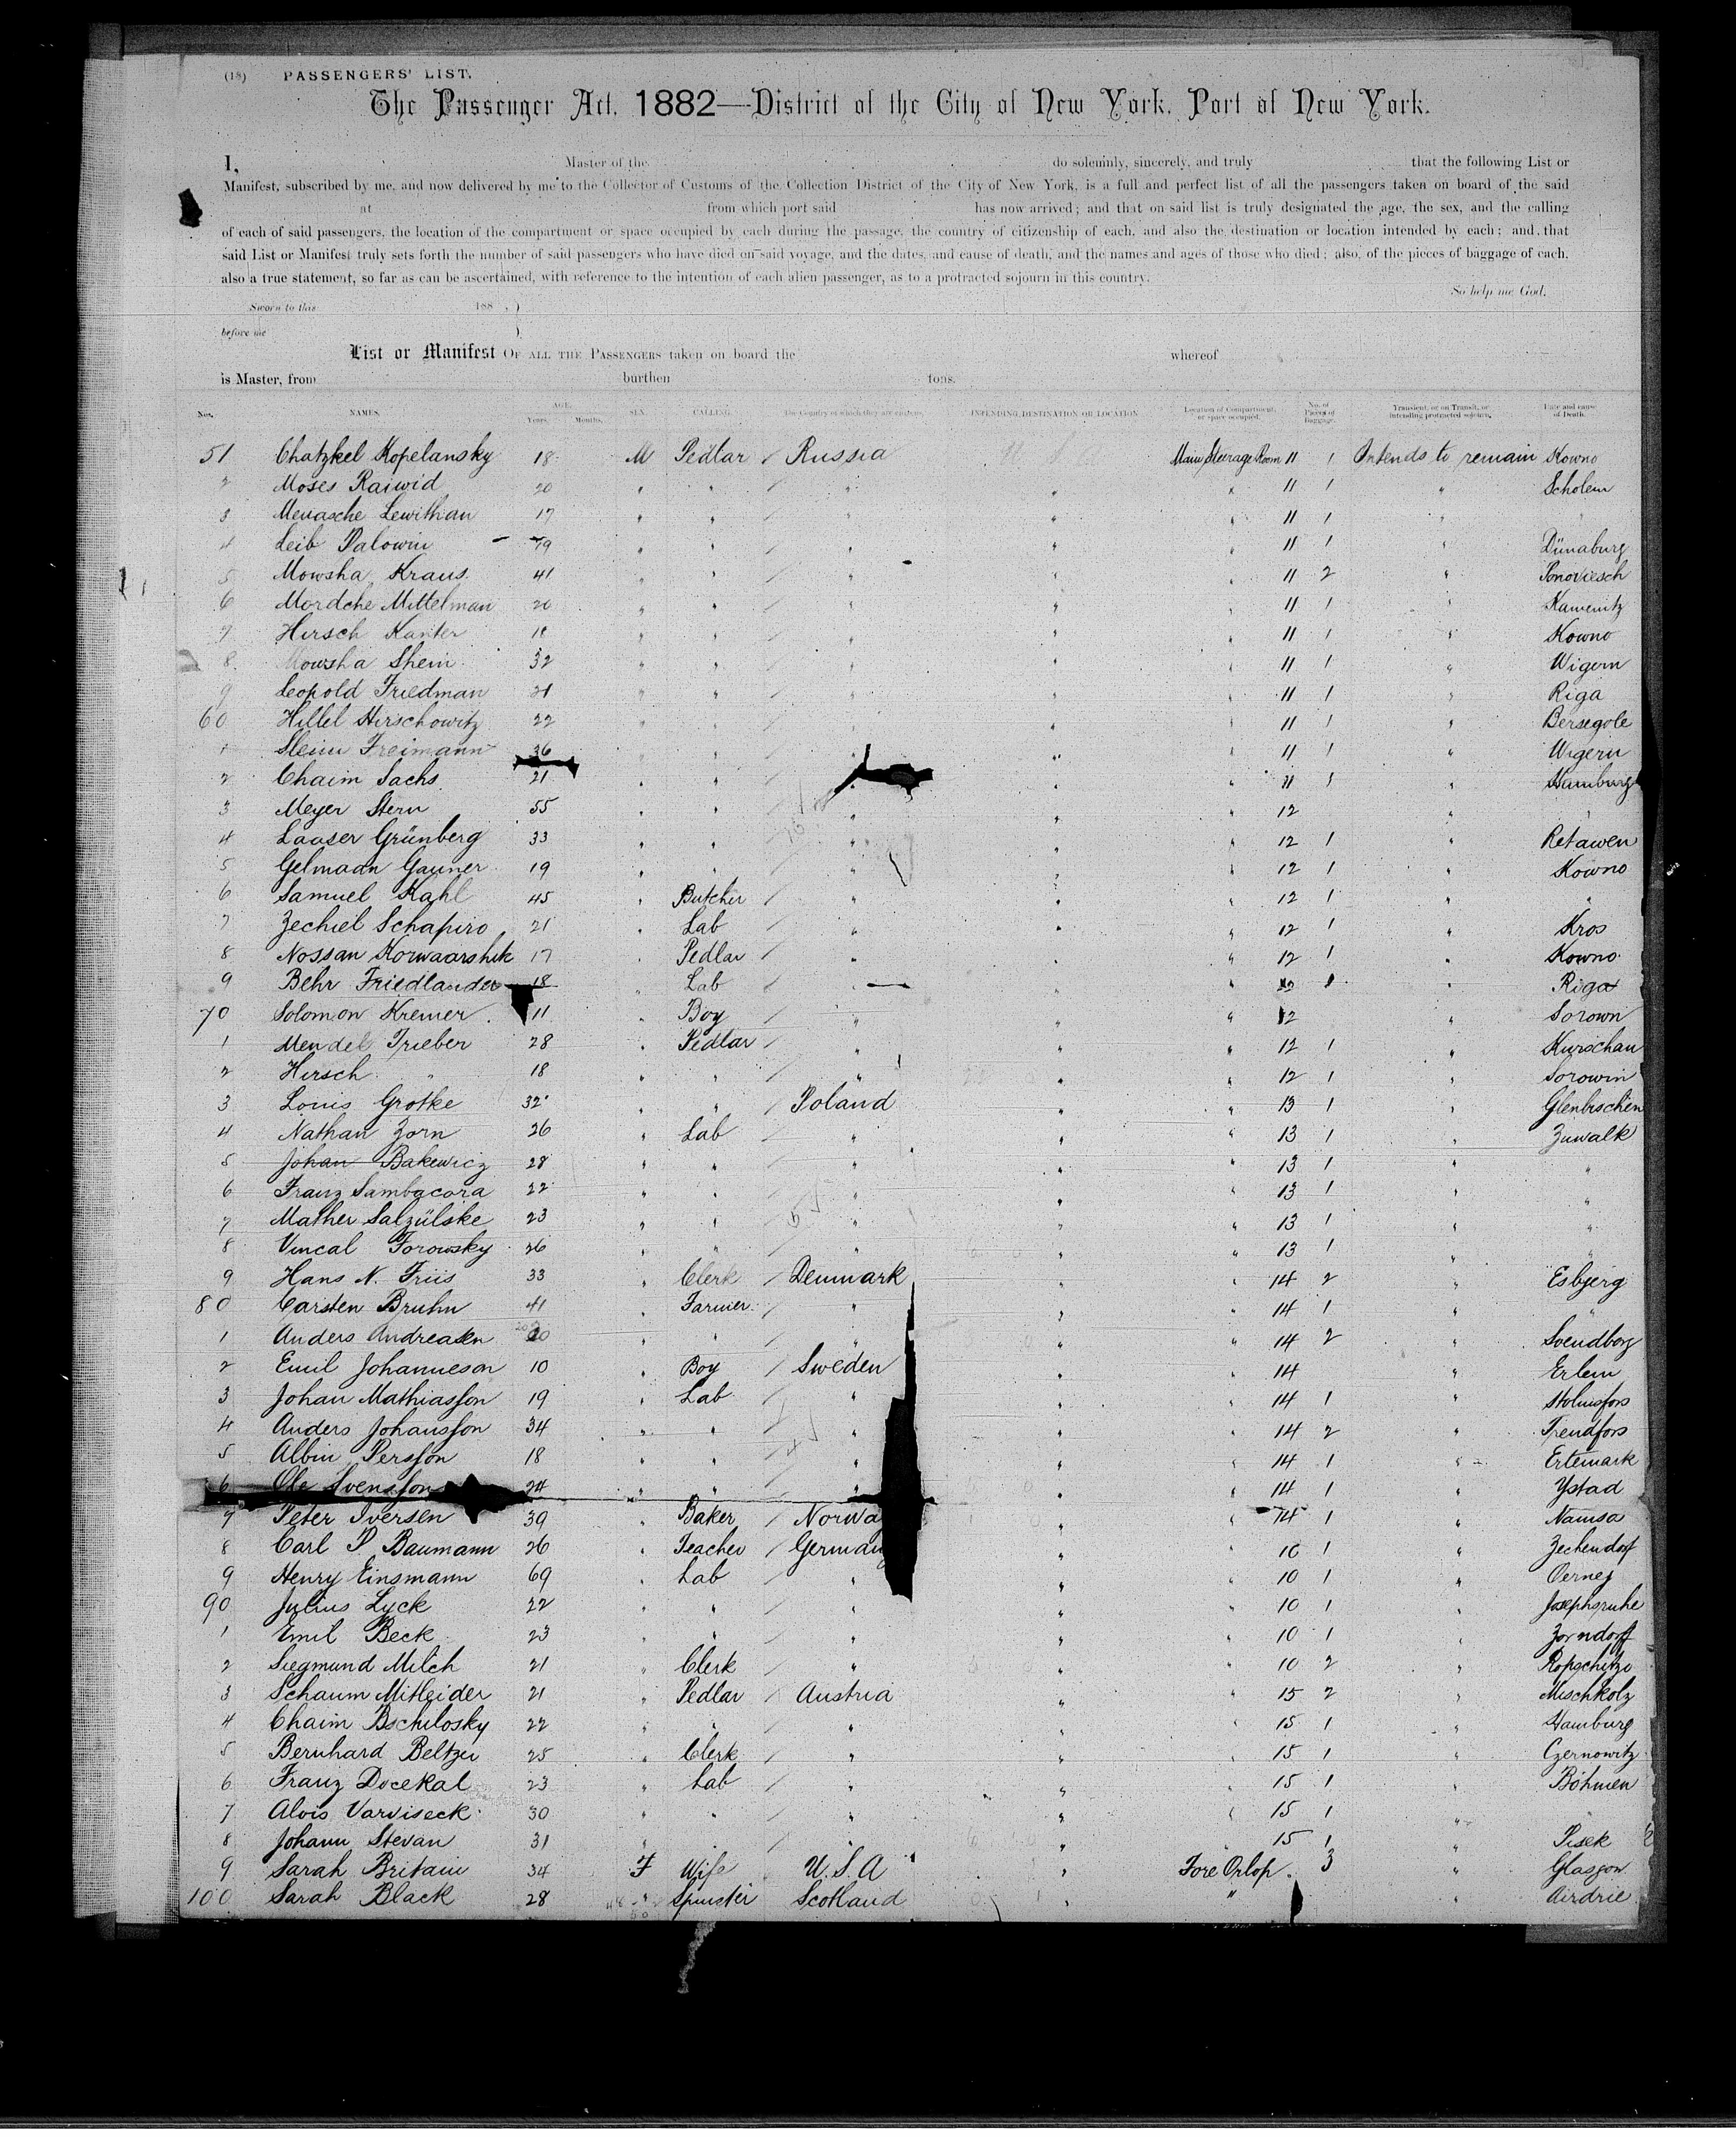 (18) PASSENGERS' LIST.
The Passenger Act, 1882—District of the City of New York, Port of New York.
I, Master of the do solemnly, sincerely, and truly that the following List or
Manifest, subscribed by me, and now delivered by me to the Collector of Customs of the Collection District of the City of New York, is a full and perfect list of all the passengers taken on board of the said
at from which port said has now arrived; and that on said list is truly designated the age, the sex, and the calling
of each of said passengers, the location of the compartment or space occupied by each during the passage, the country of citizenship of each, and also the destination or location intended by each; and that
said List or Manifest truly sets forth the number of said passengers who have died on said voyage, and the dates, and cause of death, and the names and ages of those who died; also, of the pieces of baggage of each,
also a true statement, so far as can be ascertained, with reference to the intention of each alien passenger, as to a protracted sojourn in this country.
So help me God.
Sworn to this 188 , )
before me )
List or Manifest OF ALL THE PASSENGERS taken on board the whereof
is Master, from burthen tons.
Nos. NAMES. AGE. Years. Months. SEX. CALLING. The Country of which they are citizens. INTENDING DESTINATION OR LOCATION Location of Compartment, or space occupied. No. of Pieces of Baggage. Transient, or on Transit, or intending protracted sojourn. Date and cause of Death.
51 Chatzkel Kopelansky 18 M Pedlar / Russia Main Steerage Room 11 1 Intends to remain Kowno
2 Moses Raiwid 20 " " / " " " 11 1 " Scholem
3 Menasche Lewithan 17 " " / " " " 11 1 " "
4 Leib Palowin 19 " " / " " " 11 1 " Dünaburg
5 Mowsha Kraus 41 " " / " " " 11 2 " Ponoviesch
6 Mordche Mittelman 20 " " / " " " 11 1 " Kamenitz
7 Hirsch Kanter 18 " " / " " " 11 1 " Kowno
8 Mowsha Shein 32 " " / " " " 11 1 " Wigern
9 Leopold Friedman 21 " " / " " " 11 1 " Riga
60 Hillel Hirschowitz 22 " " / " " " 11 1 " Bersegole
1 Freimann 36 " " / " " " 11 1 " Wigern
2 Chaim Sachs 21 " " / " " " 11 1 " Hamburg
3 Meyer Stern 55 " " / " " " 12 " "
4 Laaser Grünberg 33 " " / " " " 12 1 " Retawen
5 Gelmaan Gauner 19 " " / " " " 12 1 " Kowno
6 Samuel Kahl 45 " Butcher / " " " 12 1 " "
7 Zechiel Schapiro 21 " Lab / " " " 12 1 " Kros
8 Nossan Korwaarshik 17 " Pedlar / " " " 12 1 " Kowno
9 Behr Friedlander 18 " Lab / " " " 12 1 " Riga
70 Solomon Kremer 11 " Boy / " " " 12 " Sorown
1 Mendel Trieber 28 " Pedlar / " " " 12 1 " Kurschau
2 Hirsch " 18 " " / " " " 12 1 " Sorowin
3 Louis Grotke 32 " " / Poland " " 13 1 " Glenbischen
4 Nathan Zorn 26 " Lab / " " " 13 1 " Zuwalk
5 Johan Bakewicz 28 " " / " " " 13 1 " "
6 Franz Sambacora 22 " " / " " " 13 1 " "
7 Mather Salzülske 23 " " / " " " 13 1 " "
8 Vincal Forowsky 26 " " / " " " 13 1 " "
9 Hans N. Friis 33 " Clerk / Denmark " " 14 2 " Esbjerg
80 Carsten Bruhn 41 " Farmer / " " " 14 1 " "
1 Anders Andreasen 20 " " / " " " 14 2 " Svendborg
2 Emil Johanneson 10 " Boy / Sweden " " 14 " Erlem
3 Johan Mathiasson 19 " Lab / " " " 14 1 " Holmsfors
4 Anders Johansson 34 " " / " " " 14 2 " Trendfors
5 Albin Persson 18 " " / " " " 14 1 " Ertemark
6 Ole Svensson 24 " " / " " " 14 1 " Ystad
7 Peter Iversen 39 " Baker / Norwa " " 14 1 " Namsa
8 Carl P Baumann 26 " Teacher / German " " 10 1 " Zechendorf
9 Henry Einsmann 69 " Lab / " " " 10 1 "
90 Julius Lyck 22 " " / " " " 10 1 " Josephsruhe
1 Emil Beck 23 " " / " " " 10 1 " Zorndorf
2 Siegmund Milch 21 " Clerk / " " " 10 2 " Ropschitze
3 Schaum Mitleider 21 " Pedlar / Austria " " 15 2 " Mischkolz
4 Chaim Bschilosky 22 " " / " " " 15 1 " Hamburg
5 Bernhard Beltzer 25 " Clerk / " " " 15 1 " Czernowitz
6 Franz Docekal 23 " Lab / " " " 15 1 " Böhmen
7 Alois Varviseck 30 " " / " " " 15 1 " "
8 Johann Stevan 31 " " / " " " 15 1 " Pisek
9 Sarah Britain 34 F Wife U.S.A " Fore Orlop 3 " Glasgow
100 Sarah Black 28 " Spinster Scotland " " " Airdrie